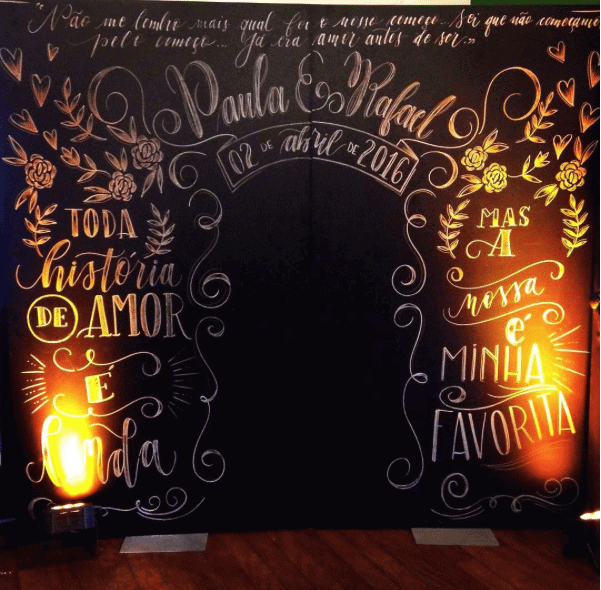 "Não me lembro mais qual foi o nosso começo. Sei que não começamos
pelo começo... Já era amor antes de ser."
Paula & Rafael
02 DE abril DE 2016
TODA
história
DE AMOR
É
linda
MAS
A
nossa
é
MINHA
FAVORITA